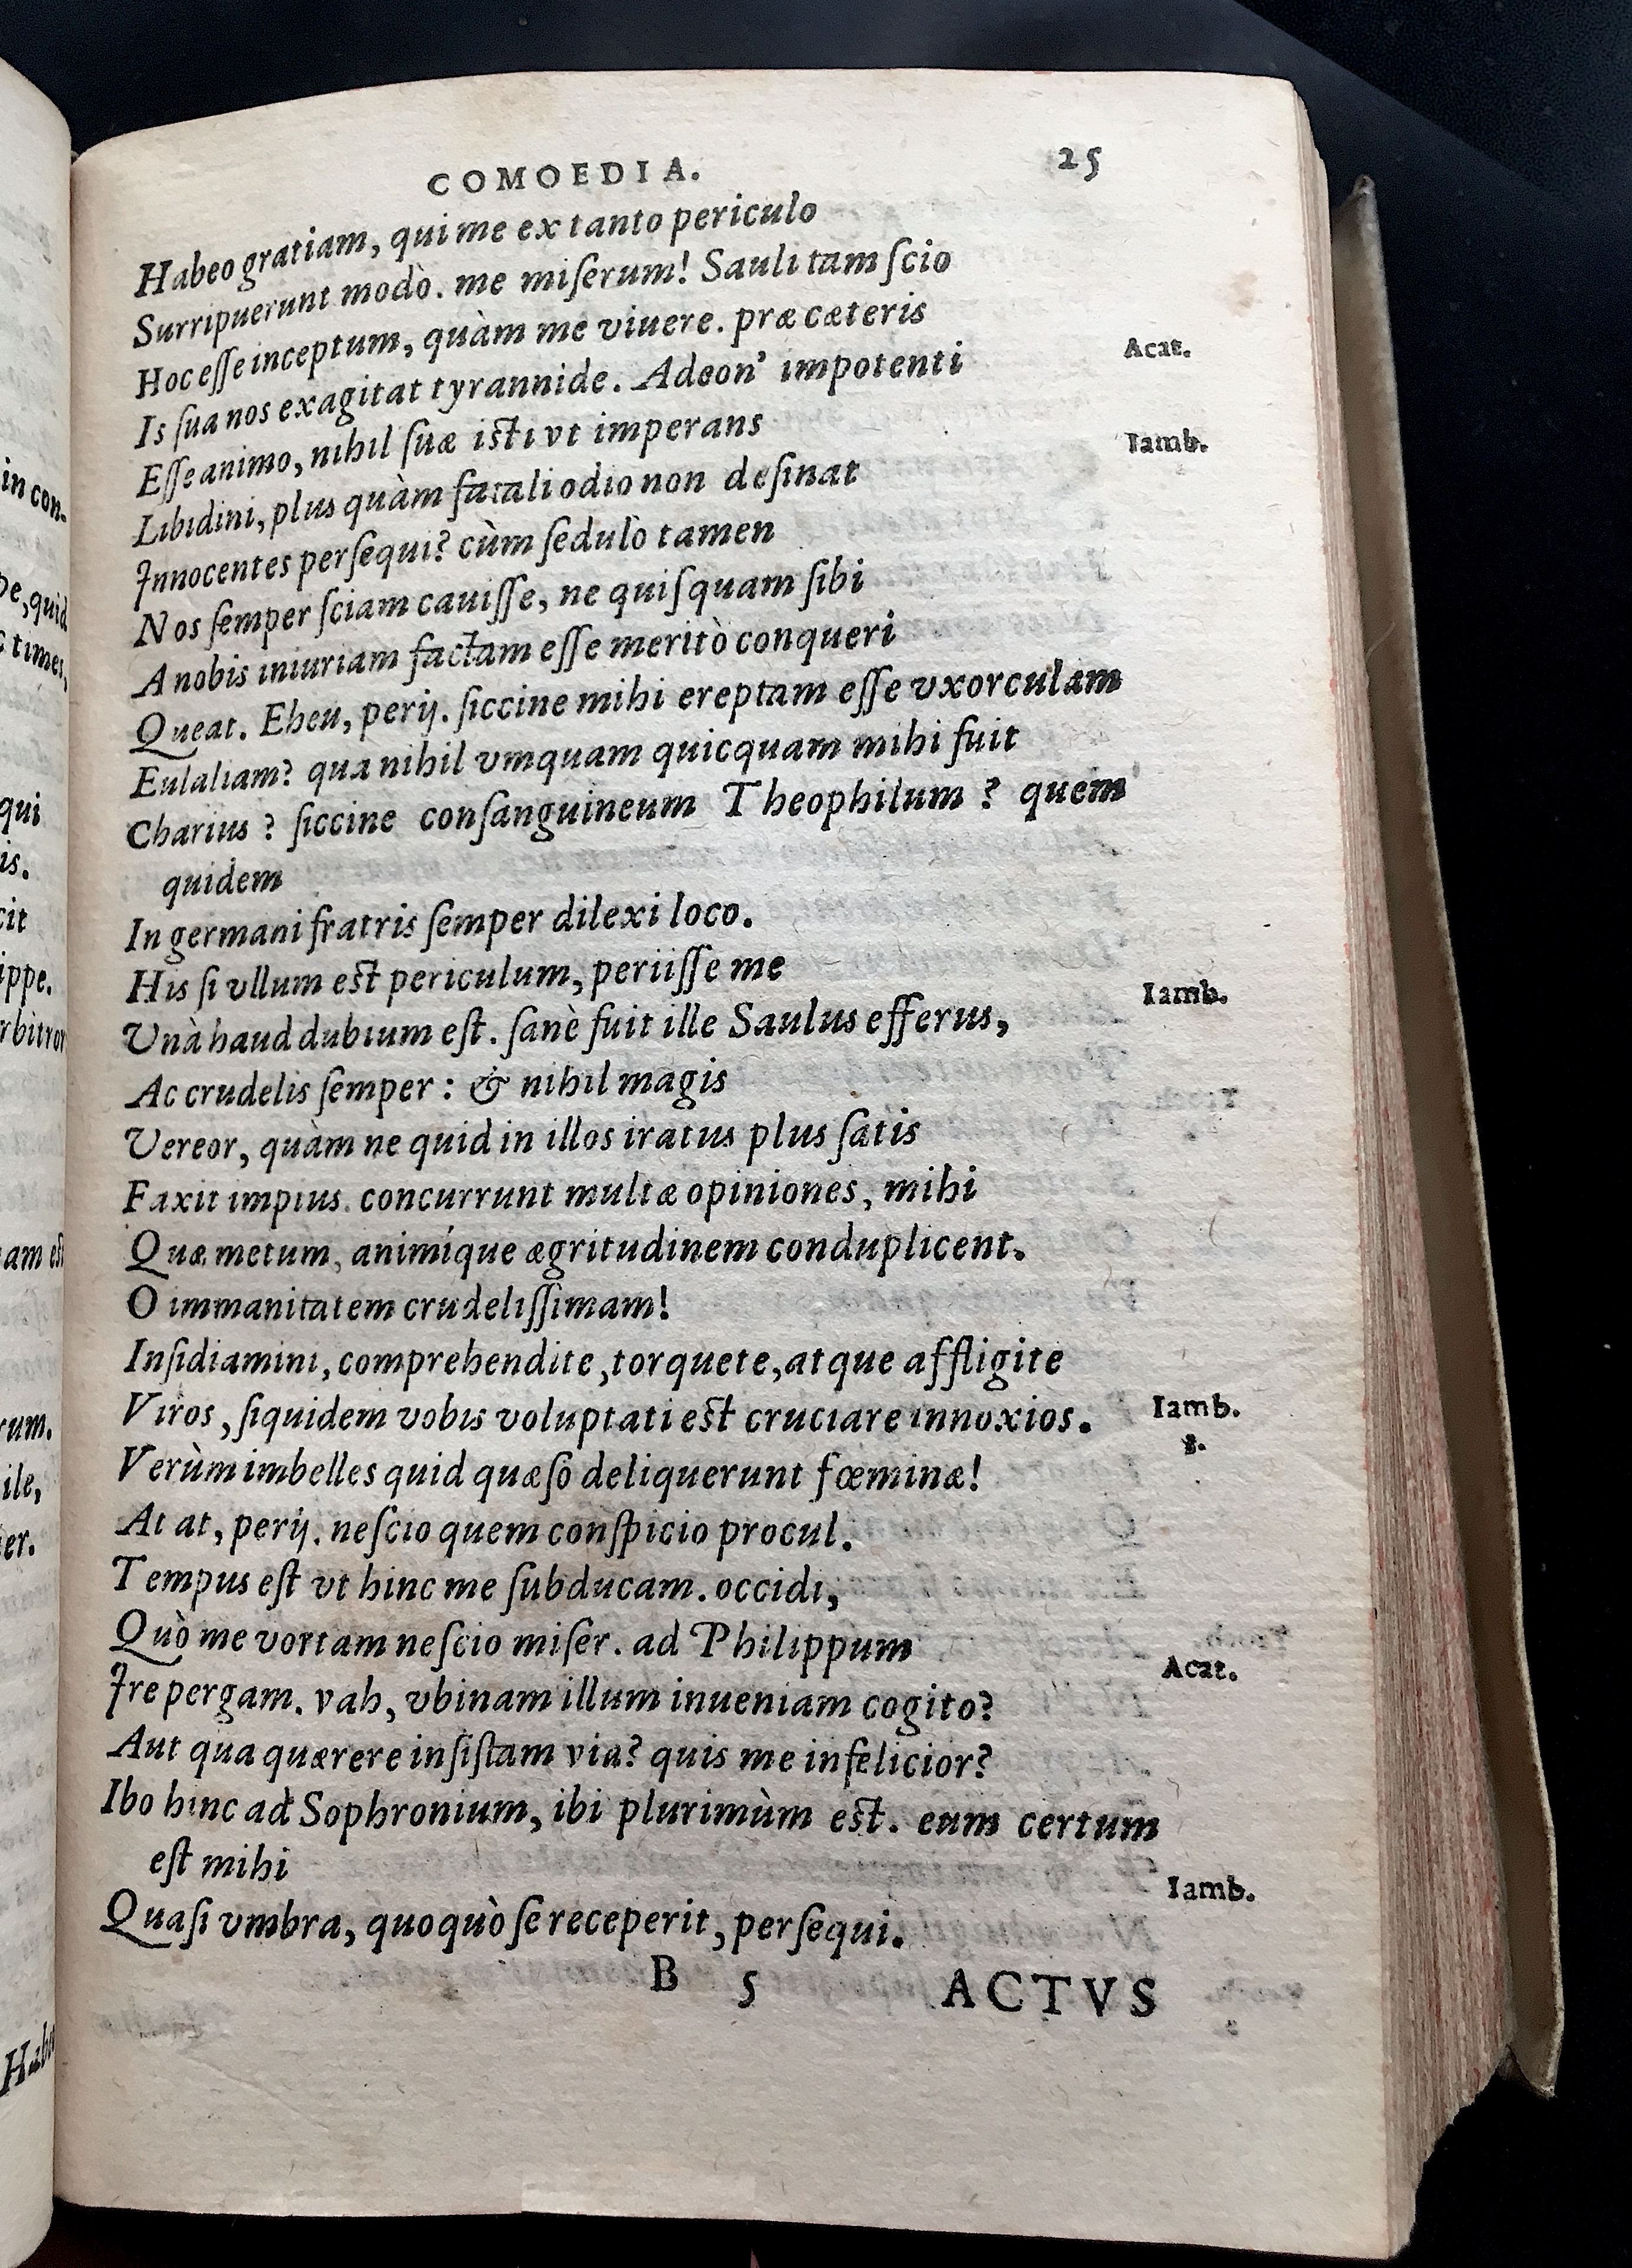 COMOEDIA. 25
Habeo gratiam, qui me ex tanto periculo
Surripuerunt modò. me miſerum! Sauli tam ſcio
Hoc eſſe inceptum, quàm me viuere. præ cæteris
Acat.
Is ſua nos exagitat tyrannide. Adeon' impotenti
Eſſe animo, nihil ſuæ iſti vt imperans
Iamb.
Libidini, plus quàm fatali odio non deſinat
Innocentes perſequi? cùm ſedulò tamen
Nos ſemper ſciam cauiſſe, ne quiſquam ſibi
A nobis iniuriam factam eſſe meritò conqueri
Queat. Eheu, perij. ſiccine mihi ereptam eſſe vxorculam
Eulaliam? qua nihil vmquam quicquam mihi fuit
Charius? ſiccine conſanguineum Theophilum? quem
quidem
In germani fratris ſemper dilexi loco.
His ſi vllum eſt periculum, periiſſe me
Iamb.
Vnà haud dubium eſt. ſanè fuit ille Saulus efferus,
Ac crudelis ſemper: & nihil magis
Vereor, quàm ne quid in illos iratus plus ſatis
Faxit impius. concurrunt multæ opiniones, mihi
Quæ metum, animíque ægritudinem conduplicent.
O immanitatem crudeliſſimam!
Inſidiamini, comprehendite, torquete, atque affligite
Viros, ſiquidem vobis voluptati eſt cruciare innoxios.
Iamb.
8.
Verùm imbelles quid quæſo deliquerunt fœminæ!
At at, perij. neſcio quem conſpicio procul.
Tempus eſt vt hinc me ſubducam. occidi,
Quò me vortam neſcio miſer. ad Philippum
Acat.
Ire pergam. vah, vbinam illum inueniam cogito?
Aut qua quærere inſiſtam via? quis me infelicior?
Ibo hinc ad Sophronium, ibi plurimùm eſt. eum certum
eſt mihi
Iamb.
Quaſi vmbra, quoquò ſe receperit, perſequi.
B 5 ACTVS
in con-
qui
is.
cit
ippe.
rbitror
am eſt
rum.
ile,
er.